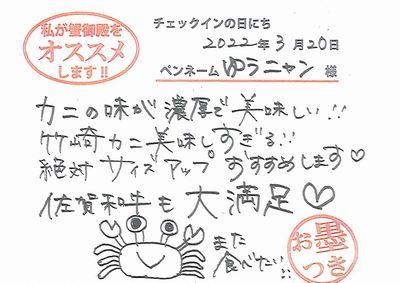 私が蟹御殿を
オススメ
します!!
チェックインの日にち
2022年3月20日
ペンネーム ゆうニャン 様
カニの味が濃厚で美味しい!!
竹崎カニ美味しすぎる!!
絶対サイズアップおすすめします♡
佐賀和牛も大満足♡
また
食べたい!!
お墨
つき